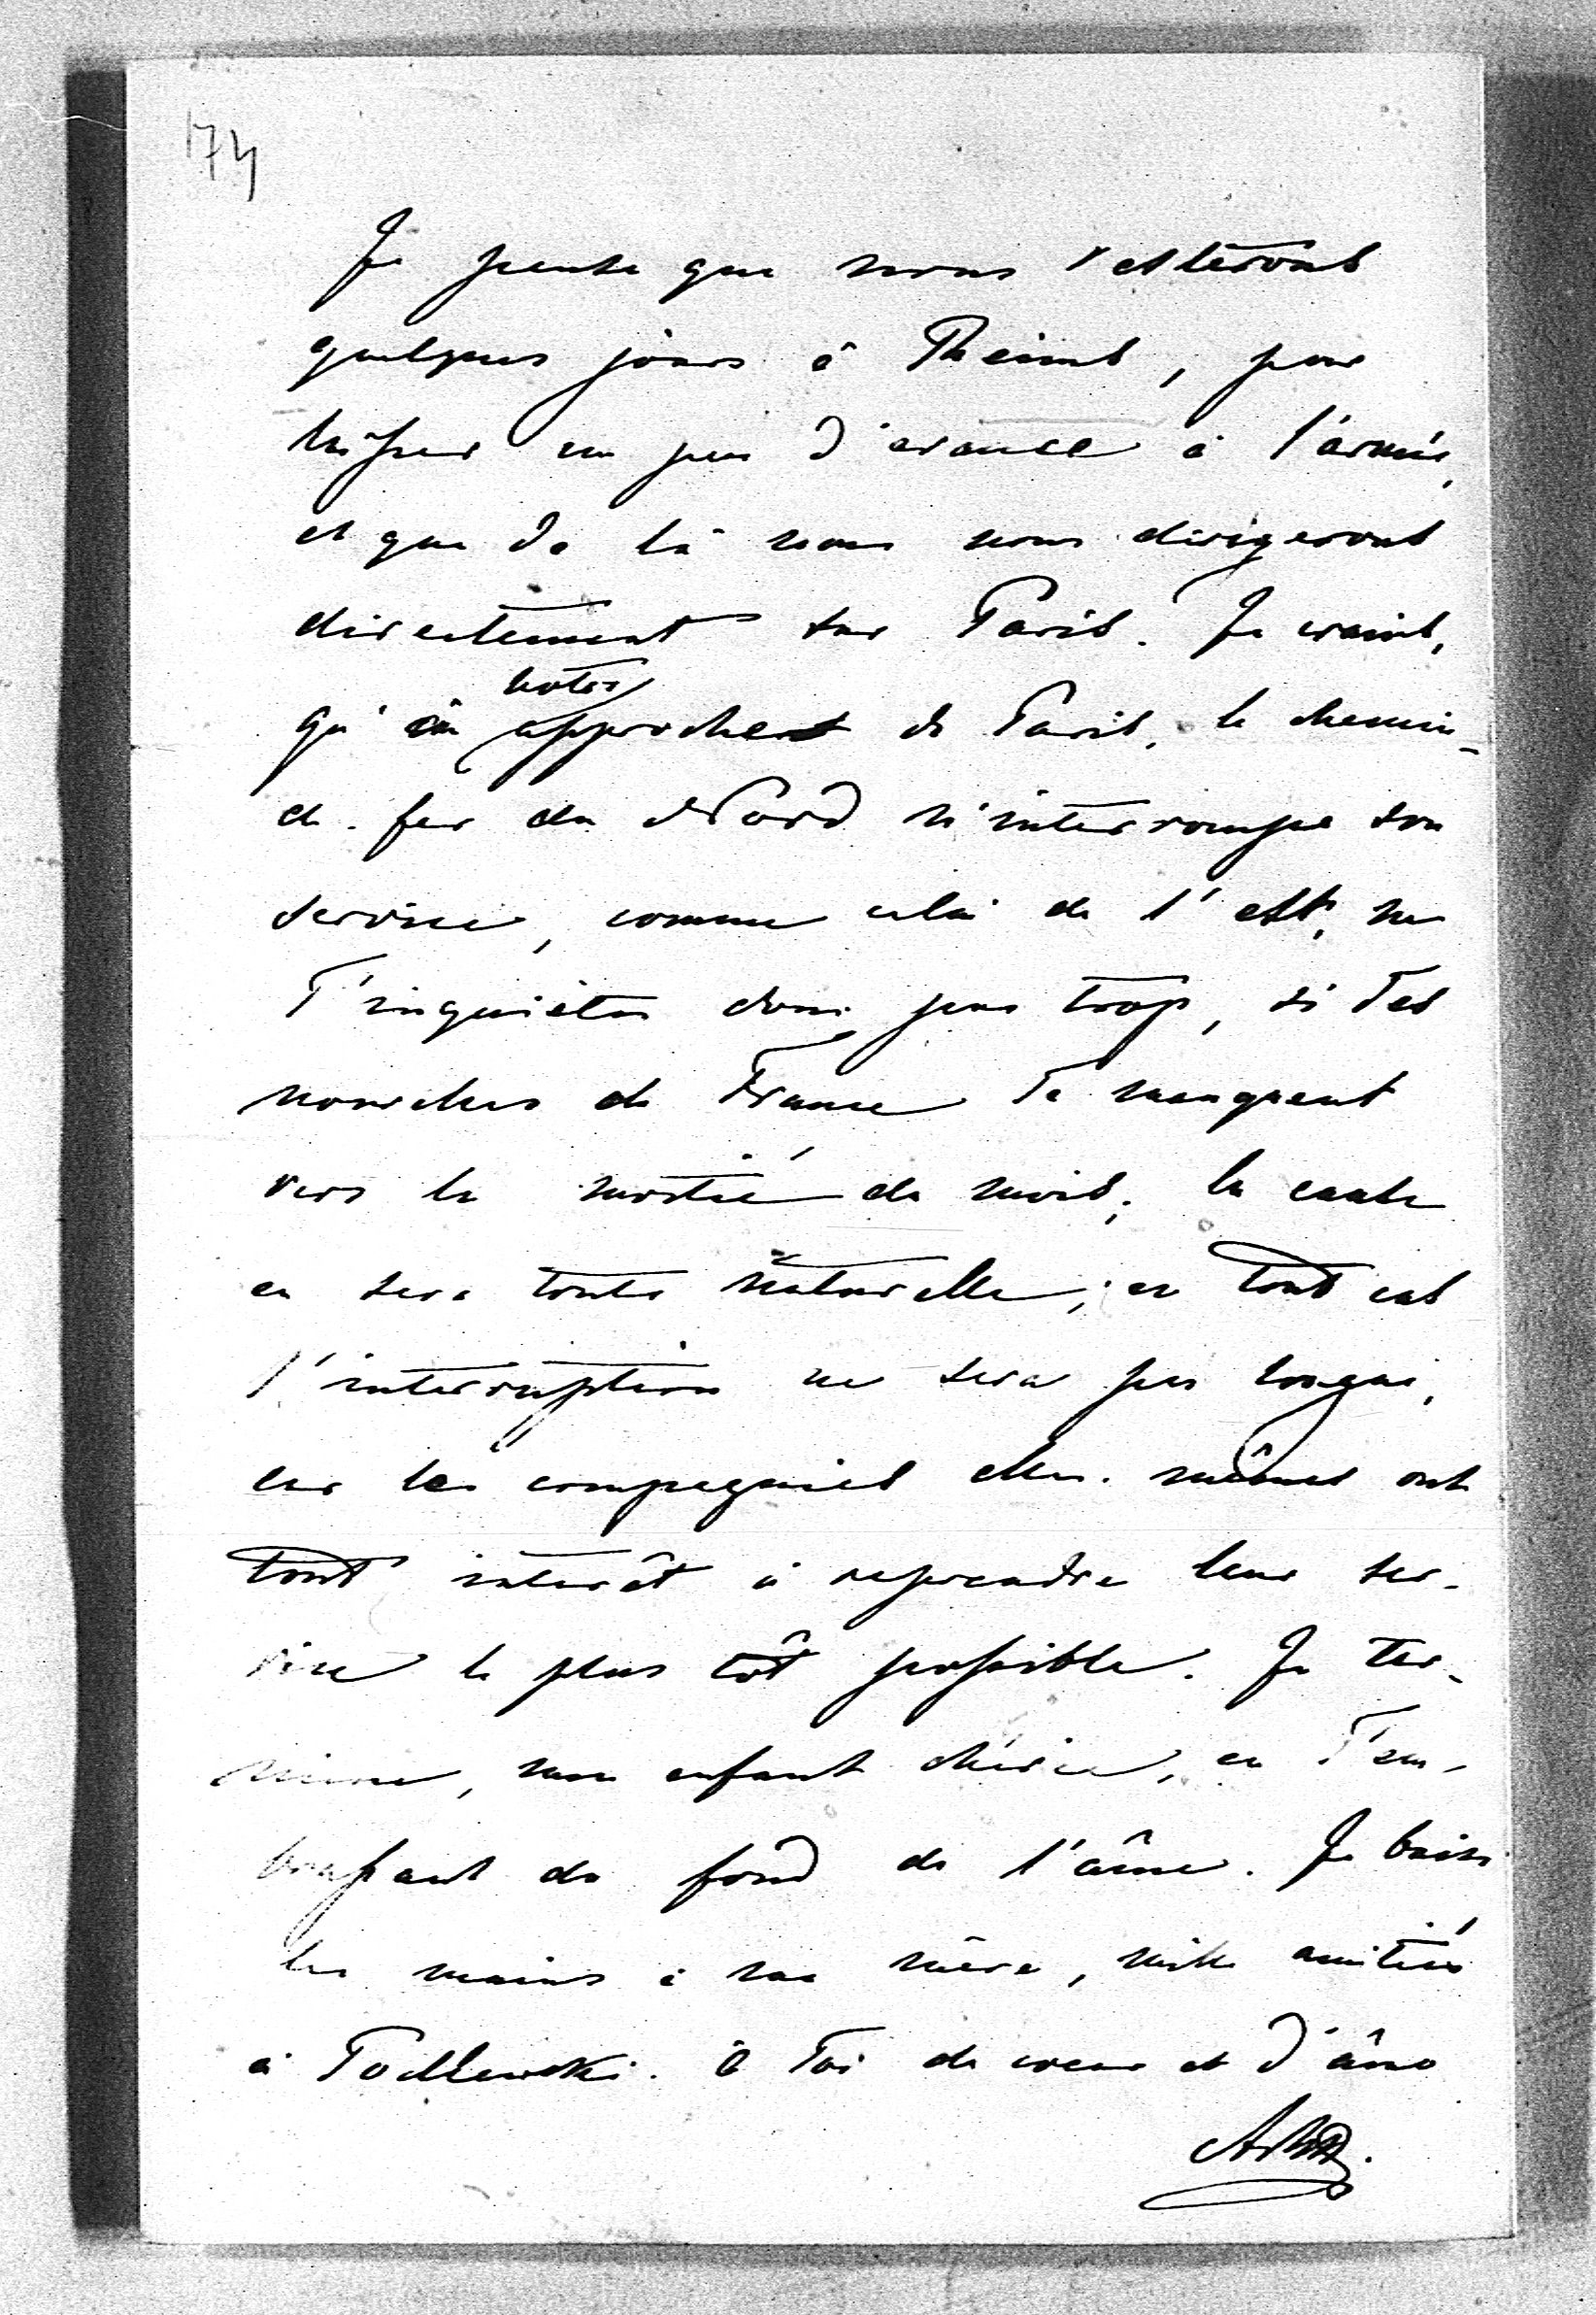 174
Je pense que nous resterons
quelques jours à Rheims, pour
laisser un peu d'avance à l'armée,
et que de là nous nous dirigerons
directement sur Paris. Je crains,
qu'à notre approche de Paris, le chemin-
de-fer du Nord n'interrompe son
service, comme celui de l'est, ne
T'inquiètes donc pas trop, si Tes
nouvelles de France Te manquent
vers la moitié du mois; la cause
en sera toute naturelle; en tout cas
l'interruption ne sera pas longue,
car les compagnies elles-mêmes ont
tout intérêt à reprendre leur ser-
vice le plus tôt possible. Je ter-
mine, mon enfant chérie, en T'em-
brassant du fond de l'âme. Je baise
les mains à ma mère, mille amitiés
à Podlewski. à Toi de coeur et d'âme